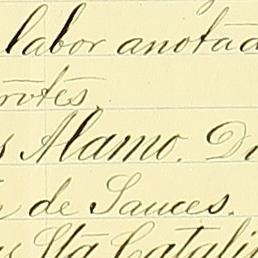 labor anotad
Alamo. D
de Sauces.
Sta Catali